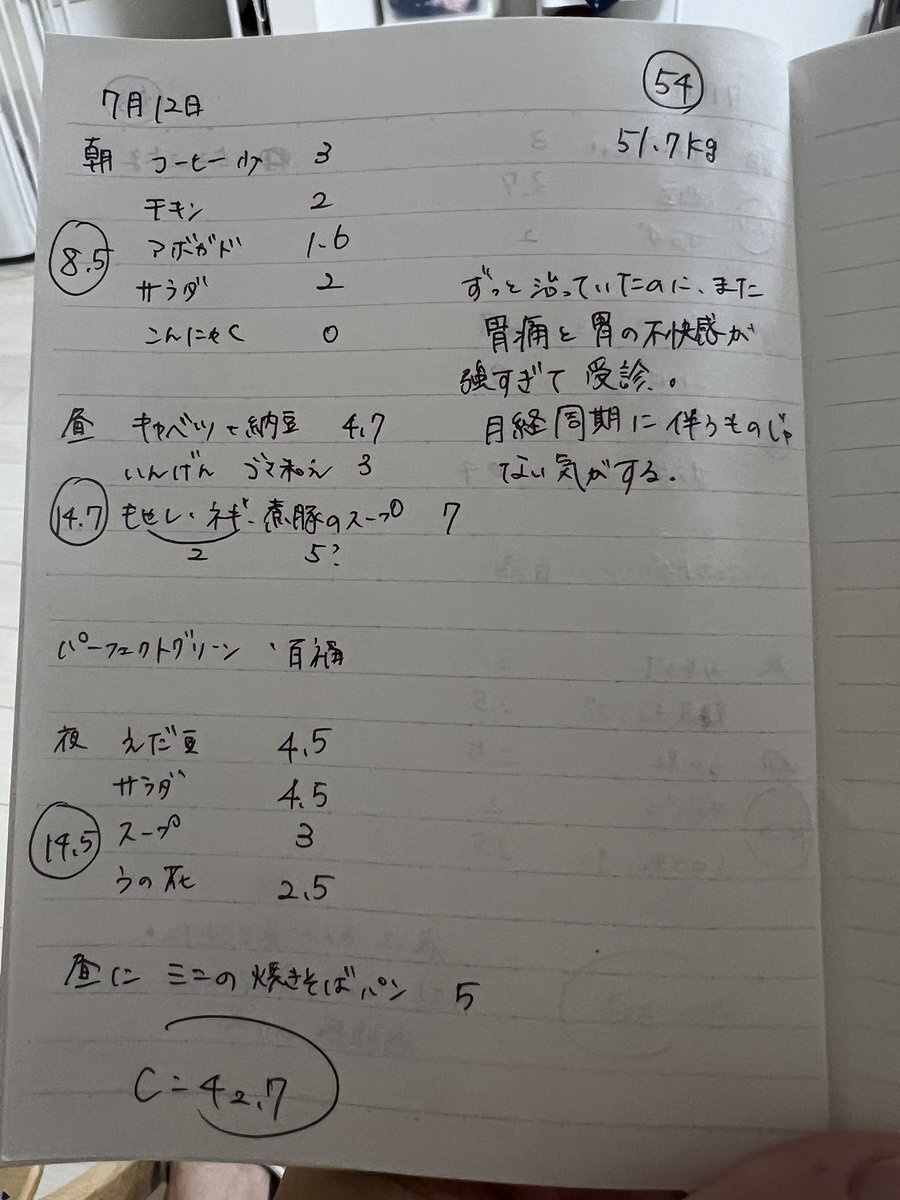 54
7月12日
51.7kg
朝 コーヒー 少 3
チキン 2
アボガド 1.6
8.5
サラダ 2
こんにゃく 0
ずっと治っていたのに、また
胃痛と胃の不快感が
強すぎて受診。
月経周期に伴うものじゃ
ない気がする。
昼 キャベツと納豆 4.7
いんげん ゴマ和え 3
14.7 もやし・ネギ・煮豚のスープ 7
2 5?
パーフェクトグリーン、胃痛
夜 えだ豆 4.5
サラダ 4.5
14.5 スープ 3
うの花 2.5
昼に ミニの焼きそばパン 5
C=42.7